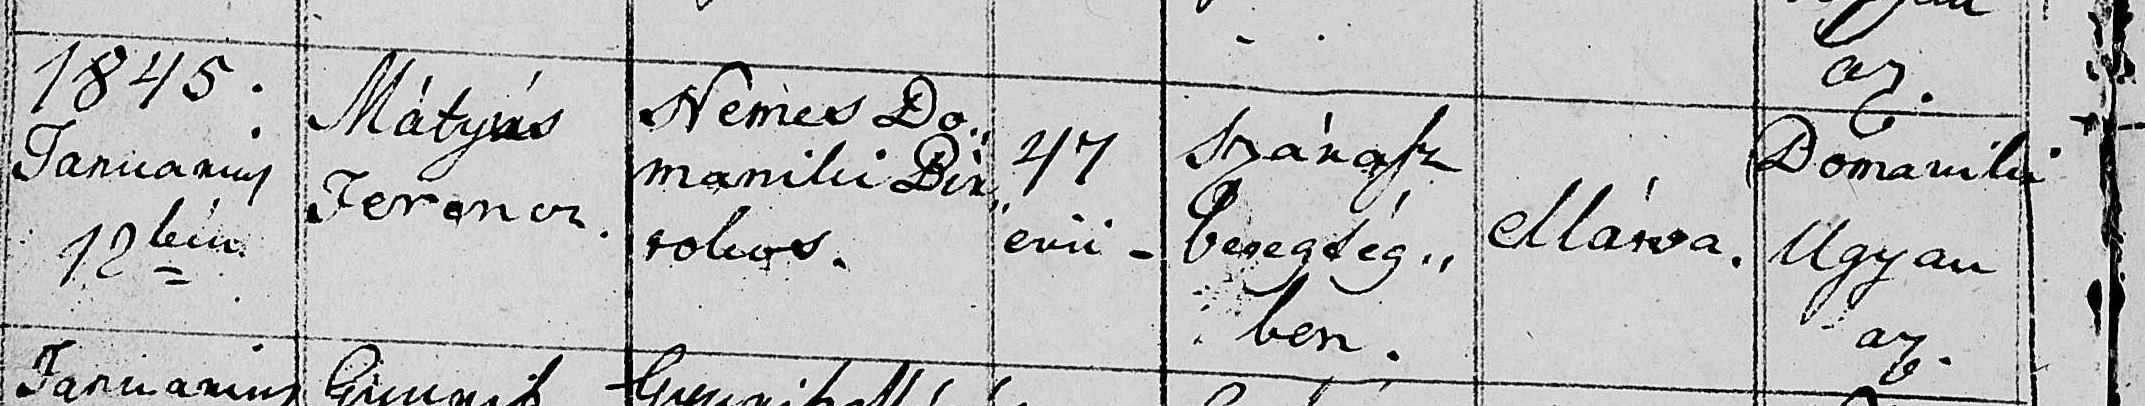 az.
1845.
Januarius
12kén
Mátyás
Ferencz.
Nemes Do„
maniki Bir„
tokos.
47
évü -
Száraz
betegség„
ben.
Márva.
Domaniki
Ugyan
az.
Januarius